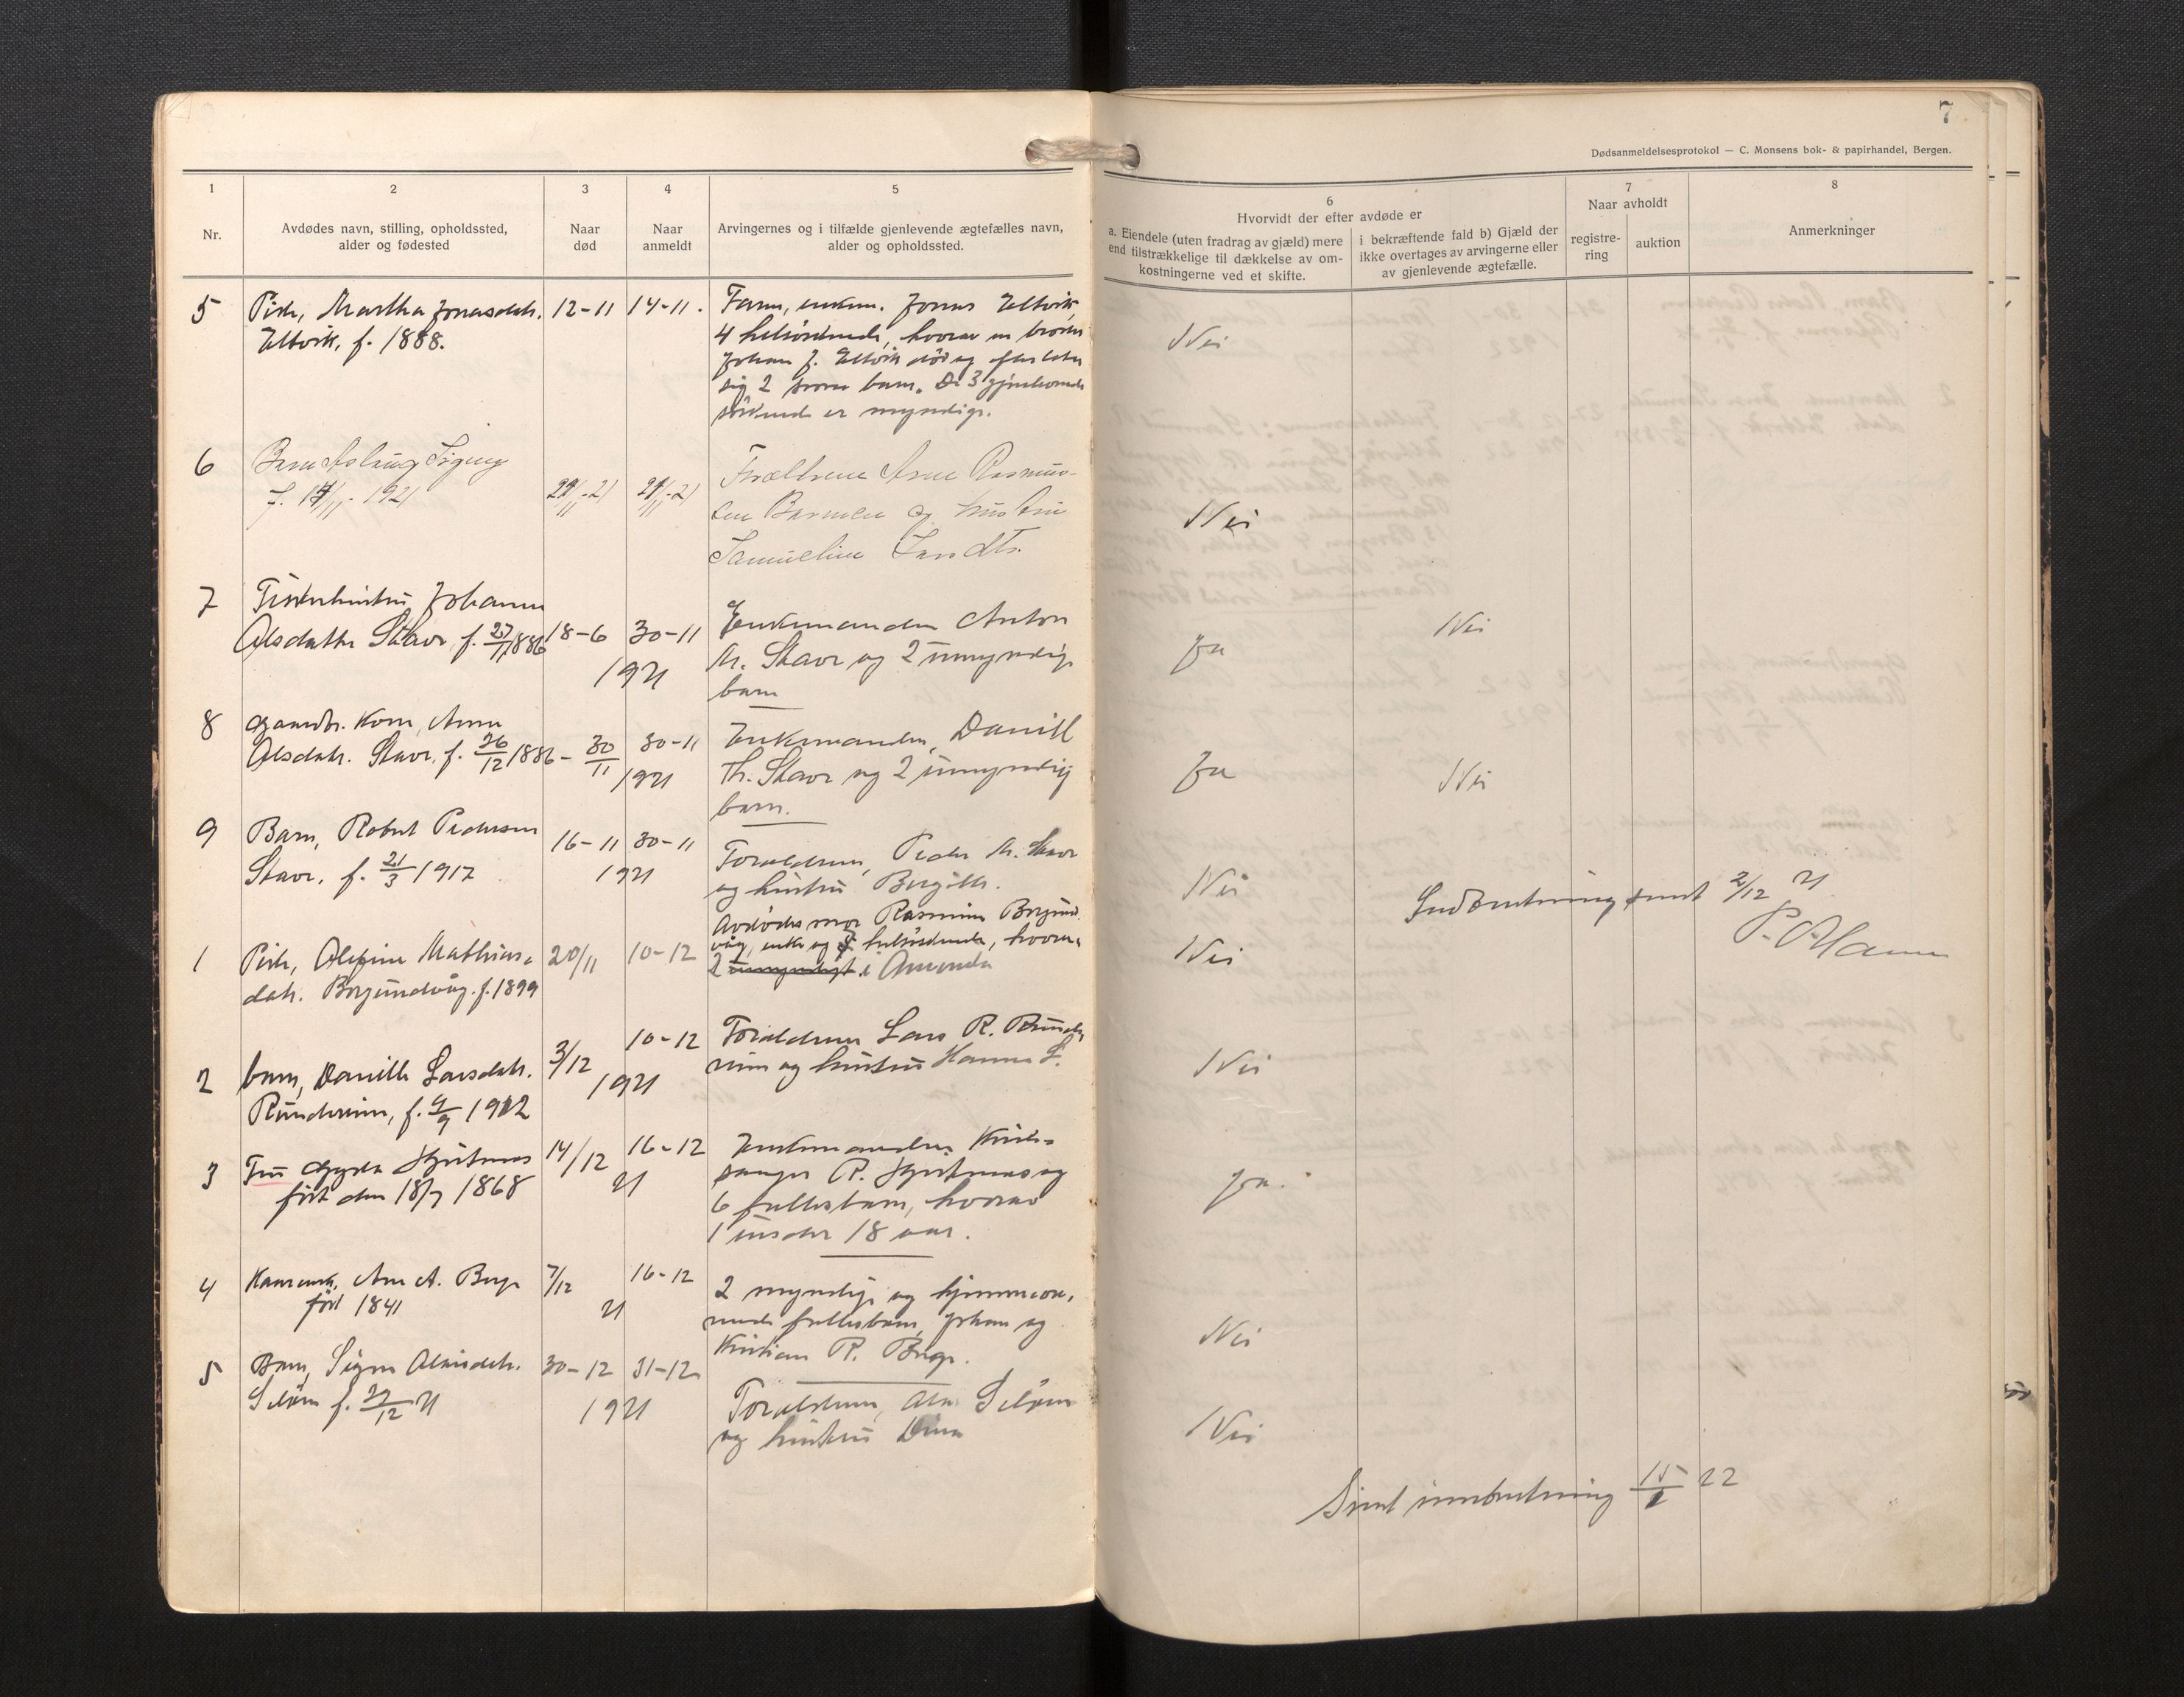 7
Dødsanmeldelsesprotokol — C. Monsens bok- & papirhandel, Bergen.
1
2
3
4
5
Nr.
Avdødes navn, stilling, opholdssted,
alder og fødested
Naar
død
Naar
anmeldt
Arvingernes og i tilfælde gjenlevende ægtefælles navn,
alder og opholdssted.
6
Hvorvidt der efter avdøde er
a. Eiendele (uten fradrag av gjæld) mere
end tilstrækkelige til dækkelse av om-
kostningerne ved et skifte.
i bekræftende fald b) Gjæld der
ikke overtages av arvingerne eller
av gjenlevende ægtefælle.
7
Naar avholdt
registre-
ring
auktion
8
Anmerkninger
5
Pike, Martha Jonasdtr.
f. 1888.
12-11
14-11.
Jonas
4 helsødskende, hvorav en broder
Johan J. død og efterlater
sig 2 barn. De 3 gjenlevende
sødskende er myndige.
Nei
6
Barn Aslaug
f. 1921
21/11-21
21/11-21
Forældrene Arne Rasmus-
sen Barmen og hustru
Samueline
Nei
7
Fiskerhustru Johanne
Olsdatter Stave, f. 1886
18-6
30-11
1921
Enkemanden Anton
M. Stave og 2 umyndige
barn
Ja
Nei
8
Gaardbr. Kone, Anna
Olsdatr. Stave, f. 26/12 1886
30/11
30-11
1921
Enkemanden, Daniel
Th. Stave og 2 umyndig
barn.
Ja
Nei
9
Barn, Robert Pedersen
Stave. f. 21/3 1917
16-11
30-11
1921
Foreldrene, Peder M. Stave
og hustru Bergitte.
Nei
Indberetning sendt 2/12 21
1
Pike, Mathias-
datr. Borgundvåg. f. 1899
20/11
10-12
Avdødes mor Rasmine Borgund-
våg, enke og helsødskende, hvorav
2 umyndige i Amerika
Nei
2
barn, Larsdatr.
Rundereim, f. 1912
3/12
10-12
1921
Foreldrene Lars R. Runde-
reim og hustru Hanna L.
Nei
3
Fru Gyda
født den 18/7 1868
14/12
16-12
21
Enkemanden Kirke-
sanger R. og
6 fellesbarn, hvorav
1 under 18 aar.
Ja.
4
A. Berge
født 1841
7/12
16-12
21
2 myndige og hjemmevæ-
rende fellesbarn, Johan og
Kristian R. Berge.
Nei
5
Barn, Signe
f. 27/12 21
30-12
31-12
1921
Foreldrene,
og hustru
Nei
Sendt innberetning 22